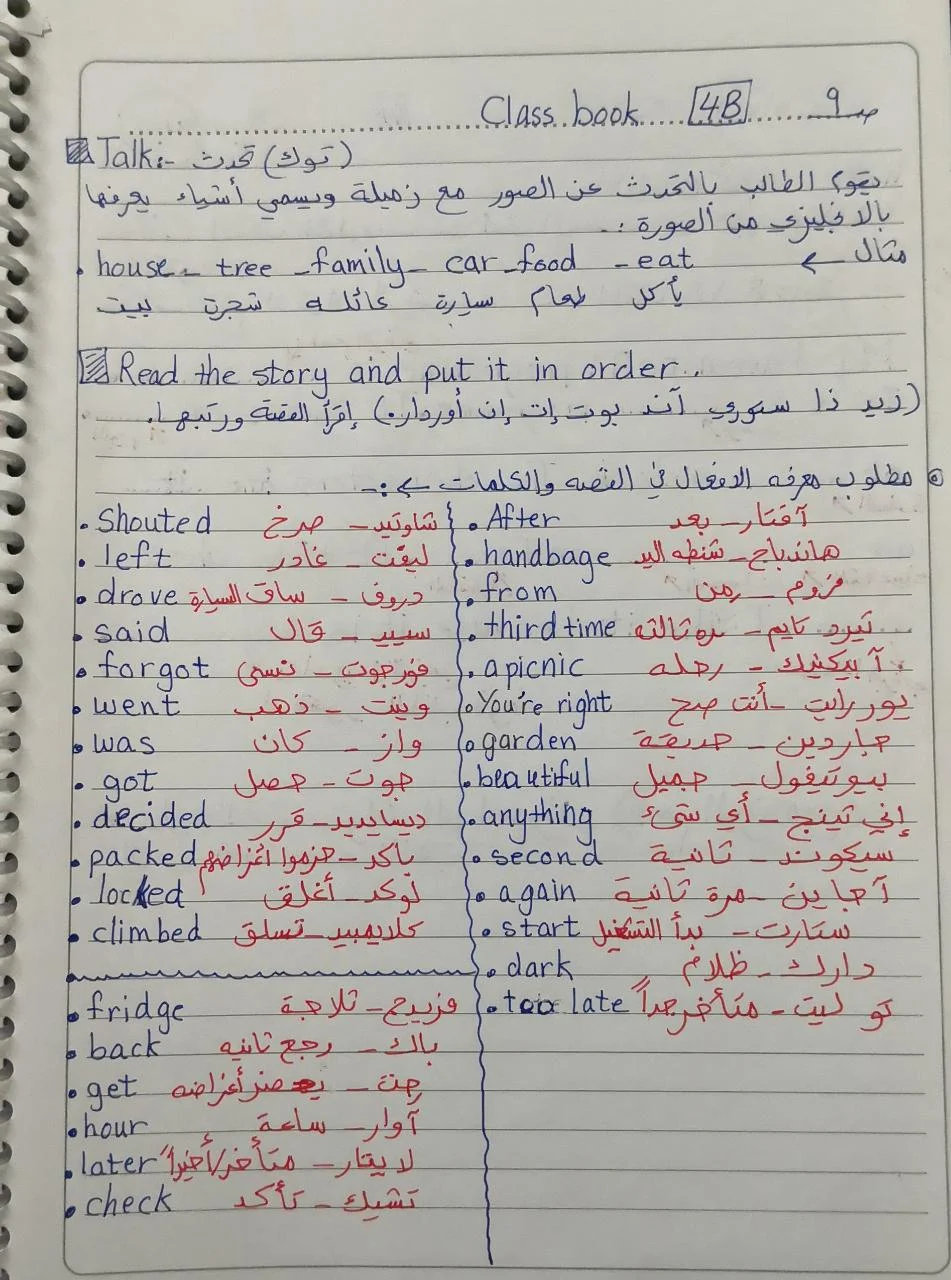 Class book 4B صـ 9
Talk:- (توك) تحدث
يقوم الطالب بالتحدث عن الصور مع زميلة ويسمي أشياء يعرفها
بالانجليزي من الصورة :.
مثال ← house - tree - family - car - food - eat
يأكل طعام سيارة عائله شجرة بيت
Read the story and put it in order..
(زيد ذا ستوري آند بوت إت إن أوردار.) إقرأ القصة ورتبها.
مطلوب معرفه الافعال في القصه والكلمات ←:-
. Shouted شاوتيد - صرخ
. left ليفت - غادر
. drove دروف - ساق السيارة
. said سييد - قال
. forgot فورجوت - نسى
. went وينت - ذهب
. was واز - كان
. got جوت - حصل
. decided ديسايديد - قرر
. packed باكد - حزموا اغراضهم
. locked لوكد - أغلق
. climbed كلايمبيد - تسلق
. fridge فريدج - ثلاجة
. back باك - رجع ثانيه
. get جت - يحضر أغراضه
. hour آوار - ساعة
. later لايتار - متأخر/أخيراً
. check تشيك - تأكد
. After آفتار - بعد
. handbage هاندباج - شنطه اليد
. from فروم - من
. third time ثيرد تايم - مره ثالثه
. a picnic آ بيكنيك - رحله
. You're right يور رايت - أنت صح
. garden جاردين - حديقة
. beautiful بيوتيفول - جميل
. anything إني ثينج - أي شئ
. second سيكوند - ثانية
. again آجاين - مرة ثانية
. start ستارت - بدأ التشغيل
. dark دارك - ظلام
. too late تو ليت - متأخر جداً